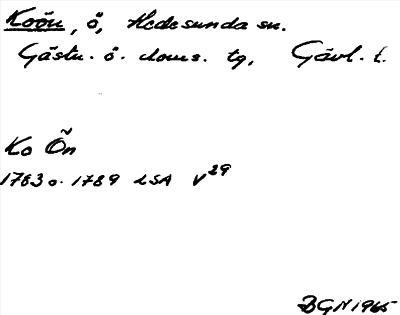 Koön, ö, Hedesunda sn.
Gästr. ö. doms. tg, Gävl. l.
Ko Õn
1783 o. 1789 LSA V 29
BGN 1965